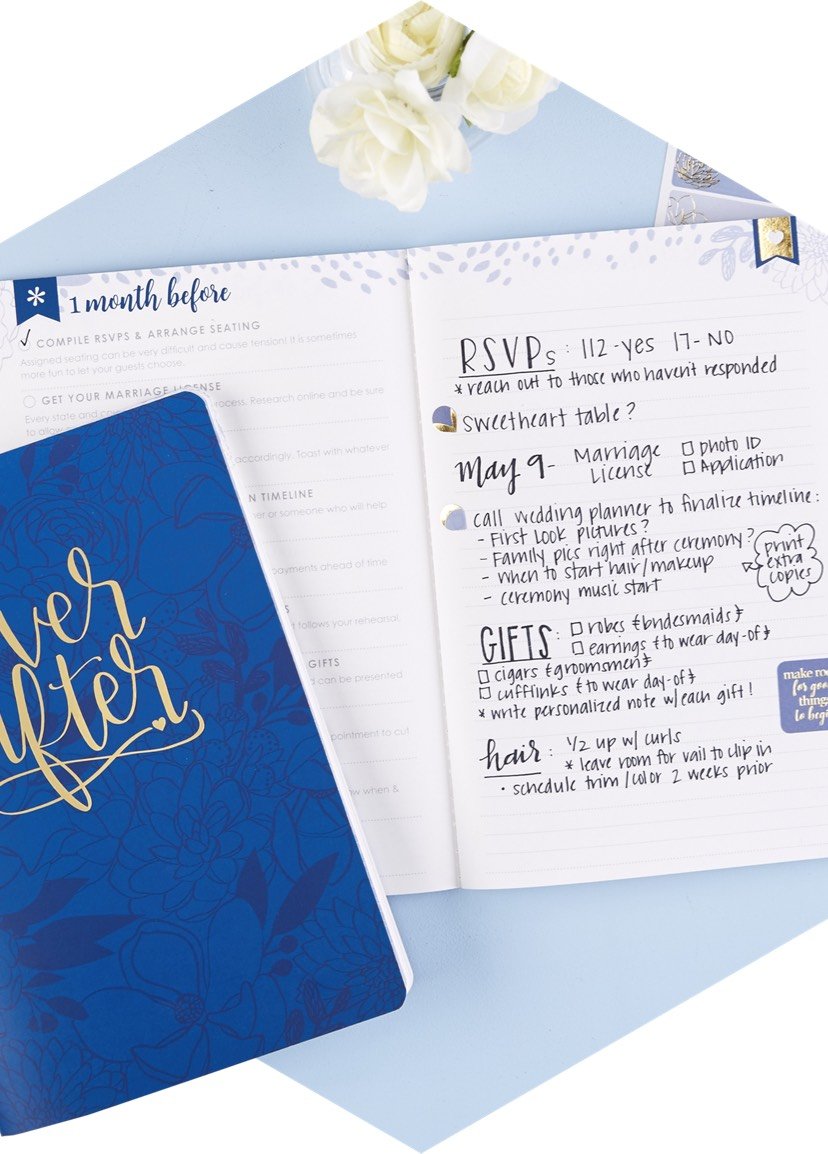 * 1 month before
✓ COMPILE RSVPS & ARRANGE SEATING
Assigned seating can be very difficult and cause tension! It is sometimes
more fun to let your guests choose.
GET YOUR MARRIAGE LICENSE
Every state and process. Research online and be sure
to allow
accordingly. Toast with whatever
N TIMELINE
or someone who will help
payments ahead of time
S
t follows your rehearsal.
GIFTS
d can be presented
pointment to cut
ow when &
ver
after
RSVPs : 112-yes 17-NO
* reach out to those who haven't responded
sweetheart table?
May 9- Marriage License
□ photo ID
□ Application
call wedding planner to finalize timeline:
- First Look pictures?
- Family pics right after ceremony?
- When to start hair/makeup
- ceremony music start
print
extra
copies
GIFTS: □ robes {bridesmaids}
□ earrings {to wear day-of}
□ cigars {groomsmen}
□ cufflinks {to wear day-of}
* write personalized note w/each gift!
make roo
for goo
things
to begi
hair: 1/2 up w/ curls
* leave room for vail to clip in
• schedule trim/color 2 weeks prior